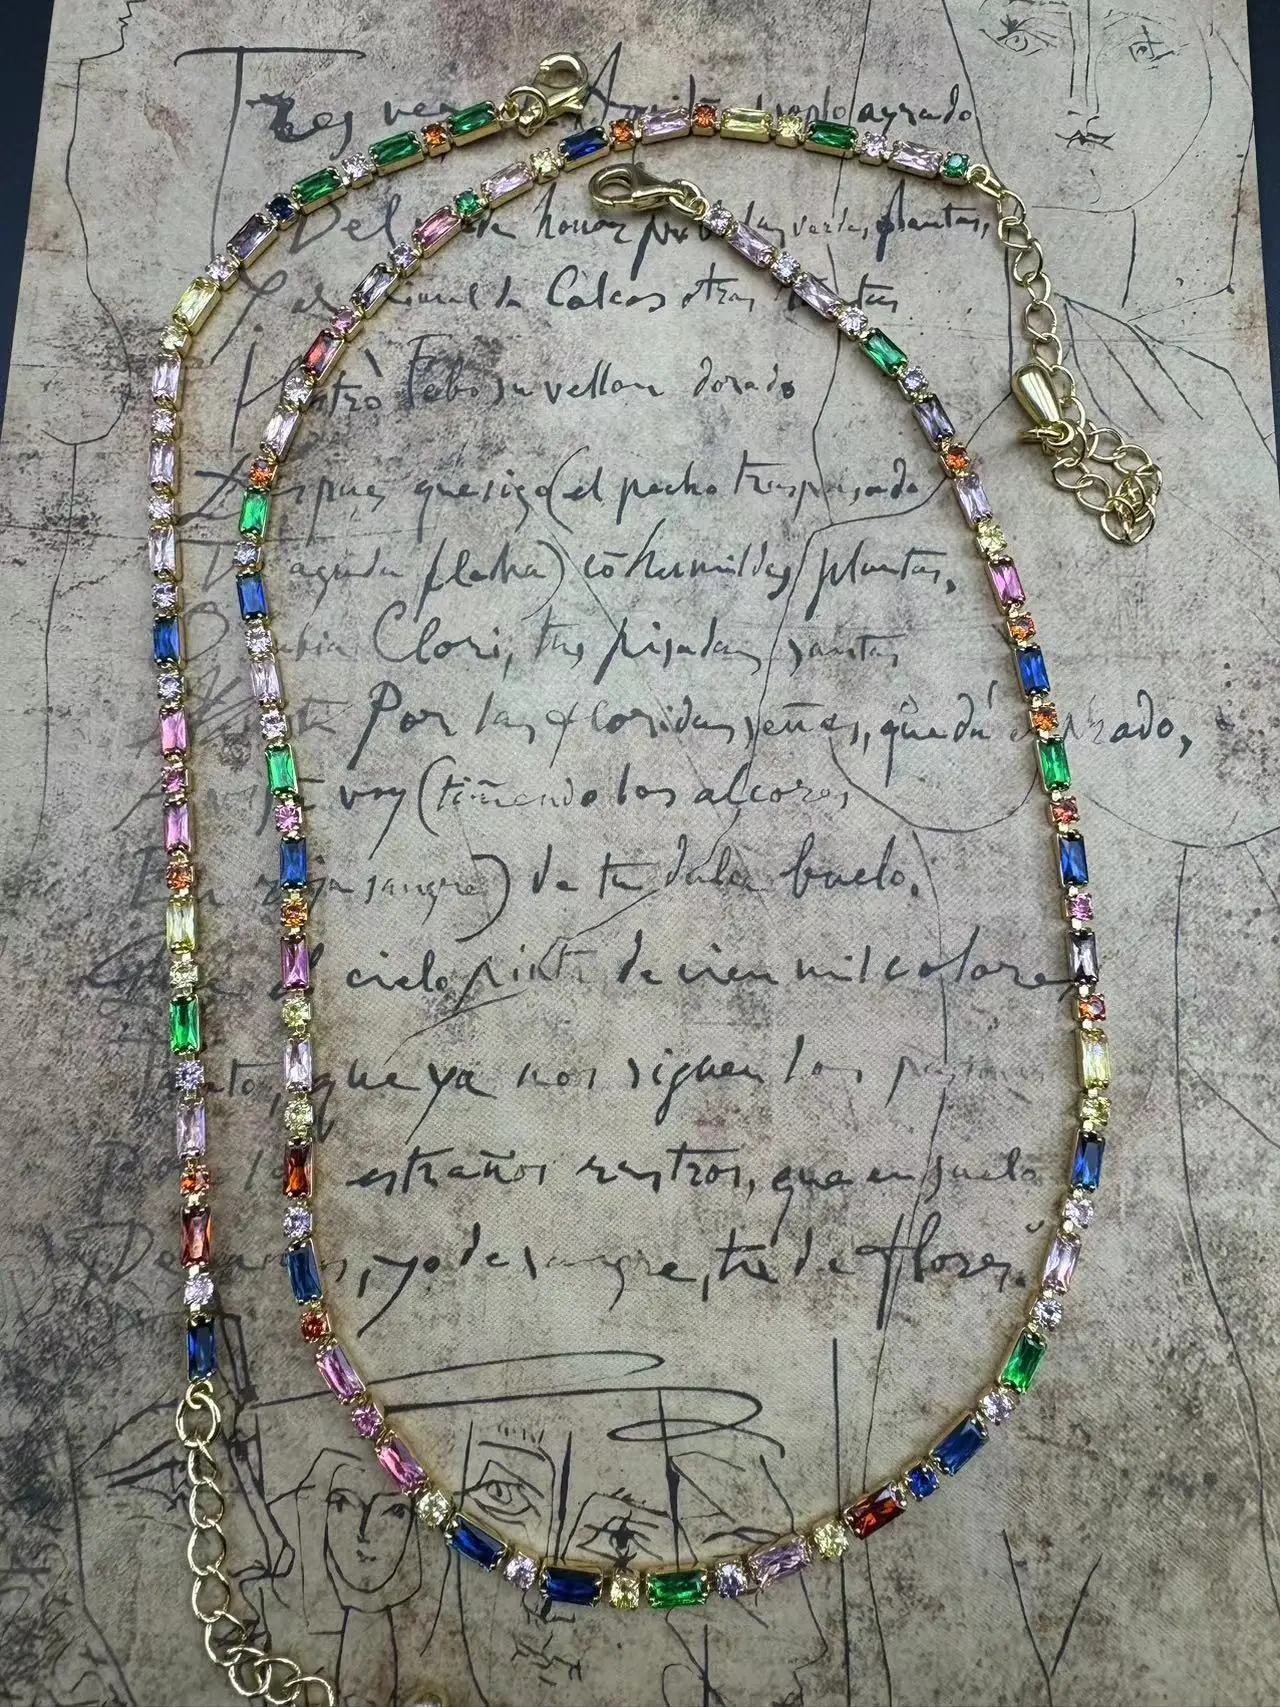 Tres ve A soplo ayrado
Del de honor privó las verdes plantas,
Y al nimal de Colcos otras tantas
stró Febo su vellon dorado
Despues que sigo (el pecho traspasado
De aguda flecha) cō humildes plantas,
Clori, tus pisadas santas
Por las floridas señas, que da prado,
A voy (tiñendo los alcores
En roja sangre) de tu dulce buelo,
el cielo pinta de cien mil colores
Tanto, que ya nos siguen los pas
estraños rastros, que en suelo
De , yo de sangre, tu de flores."